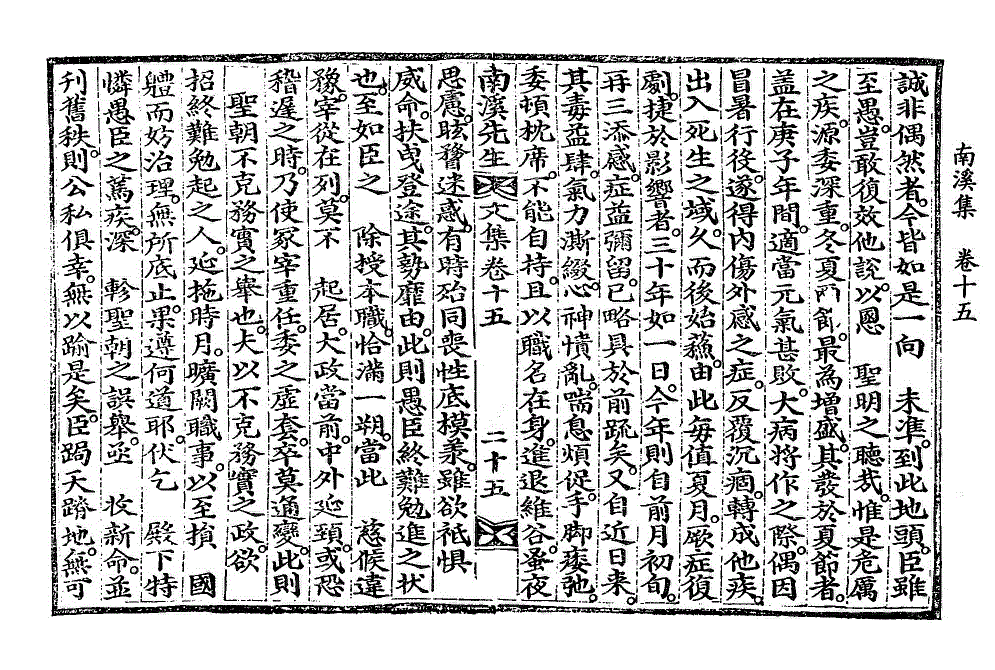 南溪集　卷十五
誠非偶然者。今皆如是一向　未准。到此地頭。臣雖
至愚。豈敢復效他說。以慁　聖明之聽哉。惟是危厲
之疾。源委深重。冬夏節。最為增盛。其發於夏節者。
盖在庚子年間。適當元氣甚敗。大病將作之際。偶因
冒暑行役。遂得內傷外感之症。反覆沉痼。轉成他疾。
出入死生之域。久而後始蘇。由此每値夏月。厥症復
劇。捷於影響者。三十年如一日。今年則自前月初旬。
再三添感。症益彌留。已略具於前疏矣。又自近日来。
其毒益肆。氣力澌綴。心神憒亂。喘息煩促。手脚痿弛。
委頓枕席。不能自持。且以職名在身。進退維谷。蚤夜
南溪先生文集卷十五　二十五
思慮。眩瞀迷惑。有時殆同喪性底模㨾。雖欲祗惧
威命。扶曳登途。其勢靡由。此則愚臣終難勉進之状
也。至如臣之　除授本職。恰滿一朔。當此　慈候違
豫。宰從在列。莫不　起居。大政當前。中外延頸。或恐
稽遲之時。乃使冢宰重任。委之虛套。卒莫通變。此則
　聖朝不克務實之舉也。夫以不克務實之政。欲
招終難勉起之人。延拖時月。曠闕職事。以至損　國
軆而妨治理。無所底止。果遵何道耶。伏乞　殿下特
憐愚臣之篤疾。深　軫聖朝之誤舉。亟　收新命。並
刋舊秩。則公私俱幸。無以踰是矣。臣跼天蹐地。無可